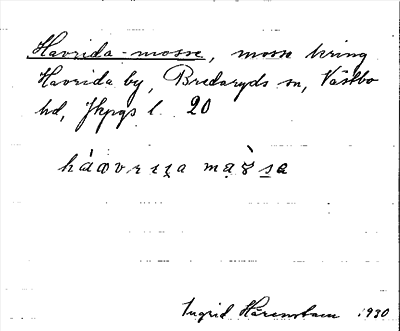 Havrida-mosse, mosse kring
Havrida by, Bredaryds sn, Västbo
hd, Jkpgs l. 20
Ingrid Härenstam 1930